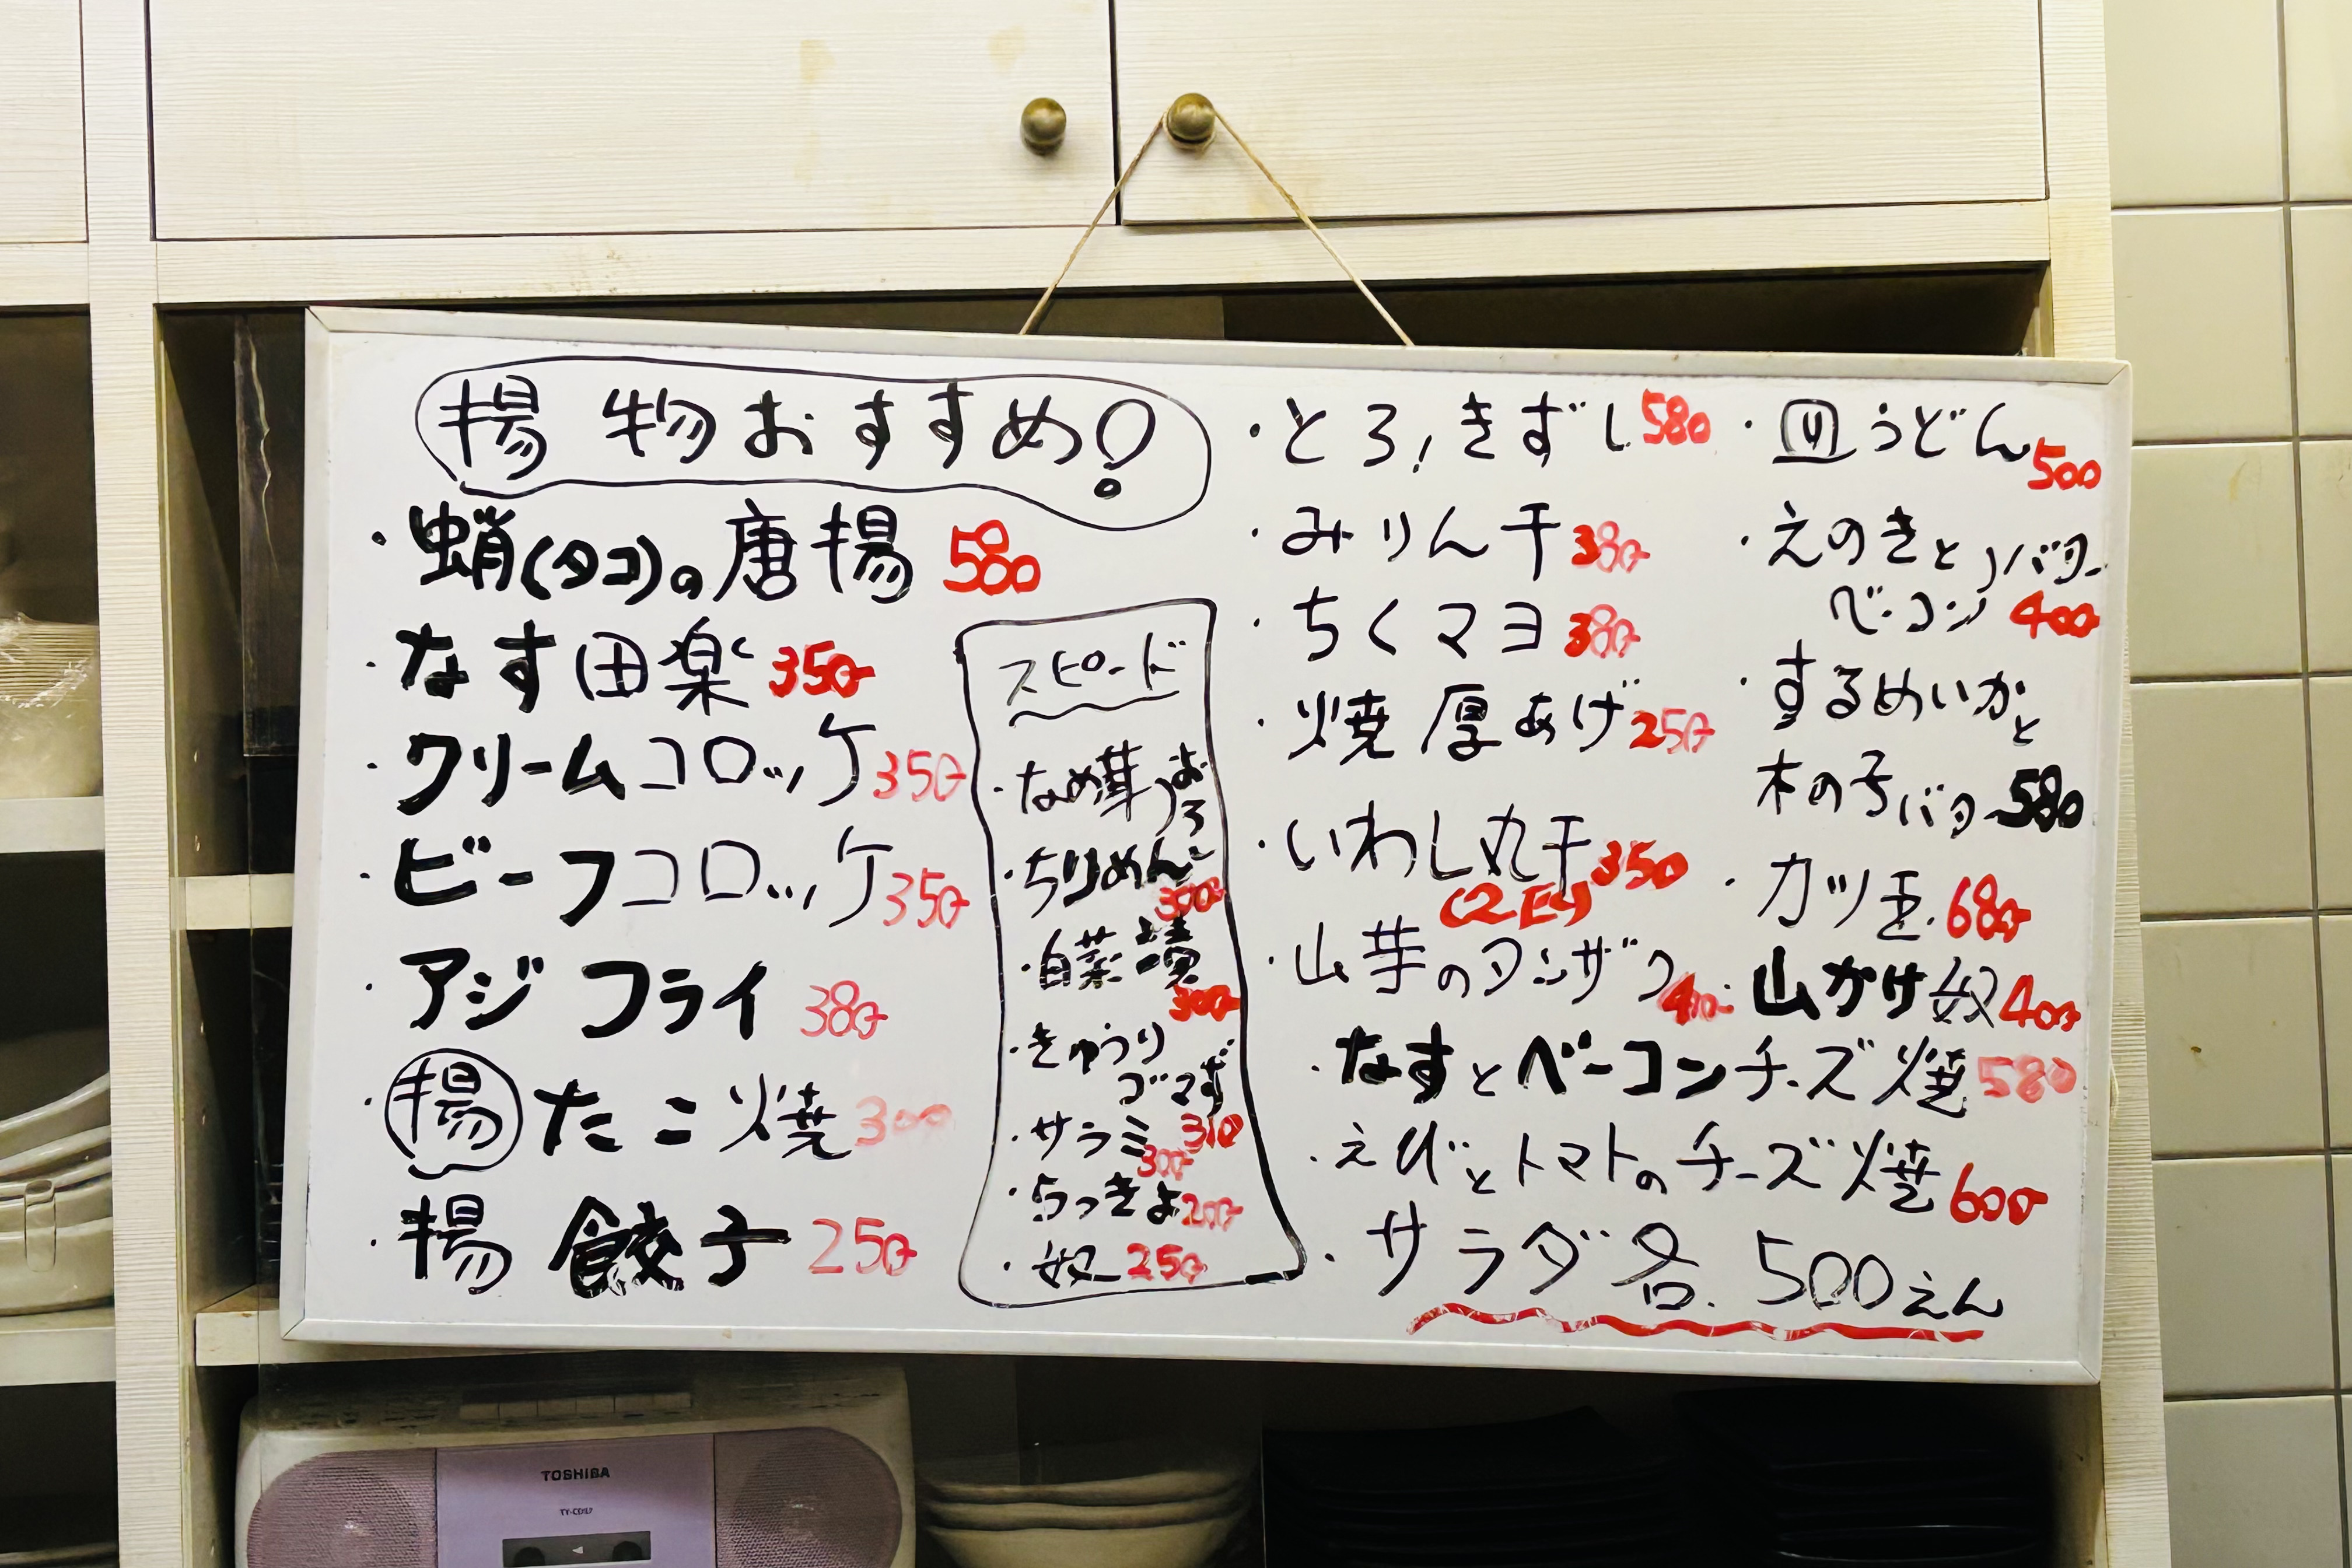 揚物おすすめ!
・蛸(タコ)の唐揚 580
・なす田楽 350
・クリームコロッケ 350
・ビーフコロッケ 350
・アジフライ 380
・揚たこ焼 300
・揚餃子 250
スピード
・なめ茸おろし
・ちりめん〃 300
・白菜漬 300
・きゅうり
ゴマず 310
・サラミ 300
・らっきょ 200
・奴 250
・とろ!きずし 580
・みりん干 380
・ちくマヨ 380
・焼厚あげ 250
・いわし丸干 350
(2匹)
・山芋のタンザク 400
・なすとベーコンチーズ焼 580
・えびとトマトのチーズ焼 600
・サラダ各 500えん
・皿うどん 500
・えのきと
ベーコン バター 400
・するめいかと
木の子バター 580
・カツ玉 680
・山かけ奴 400
TOSHIBA